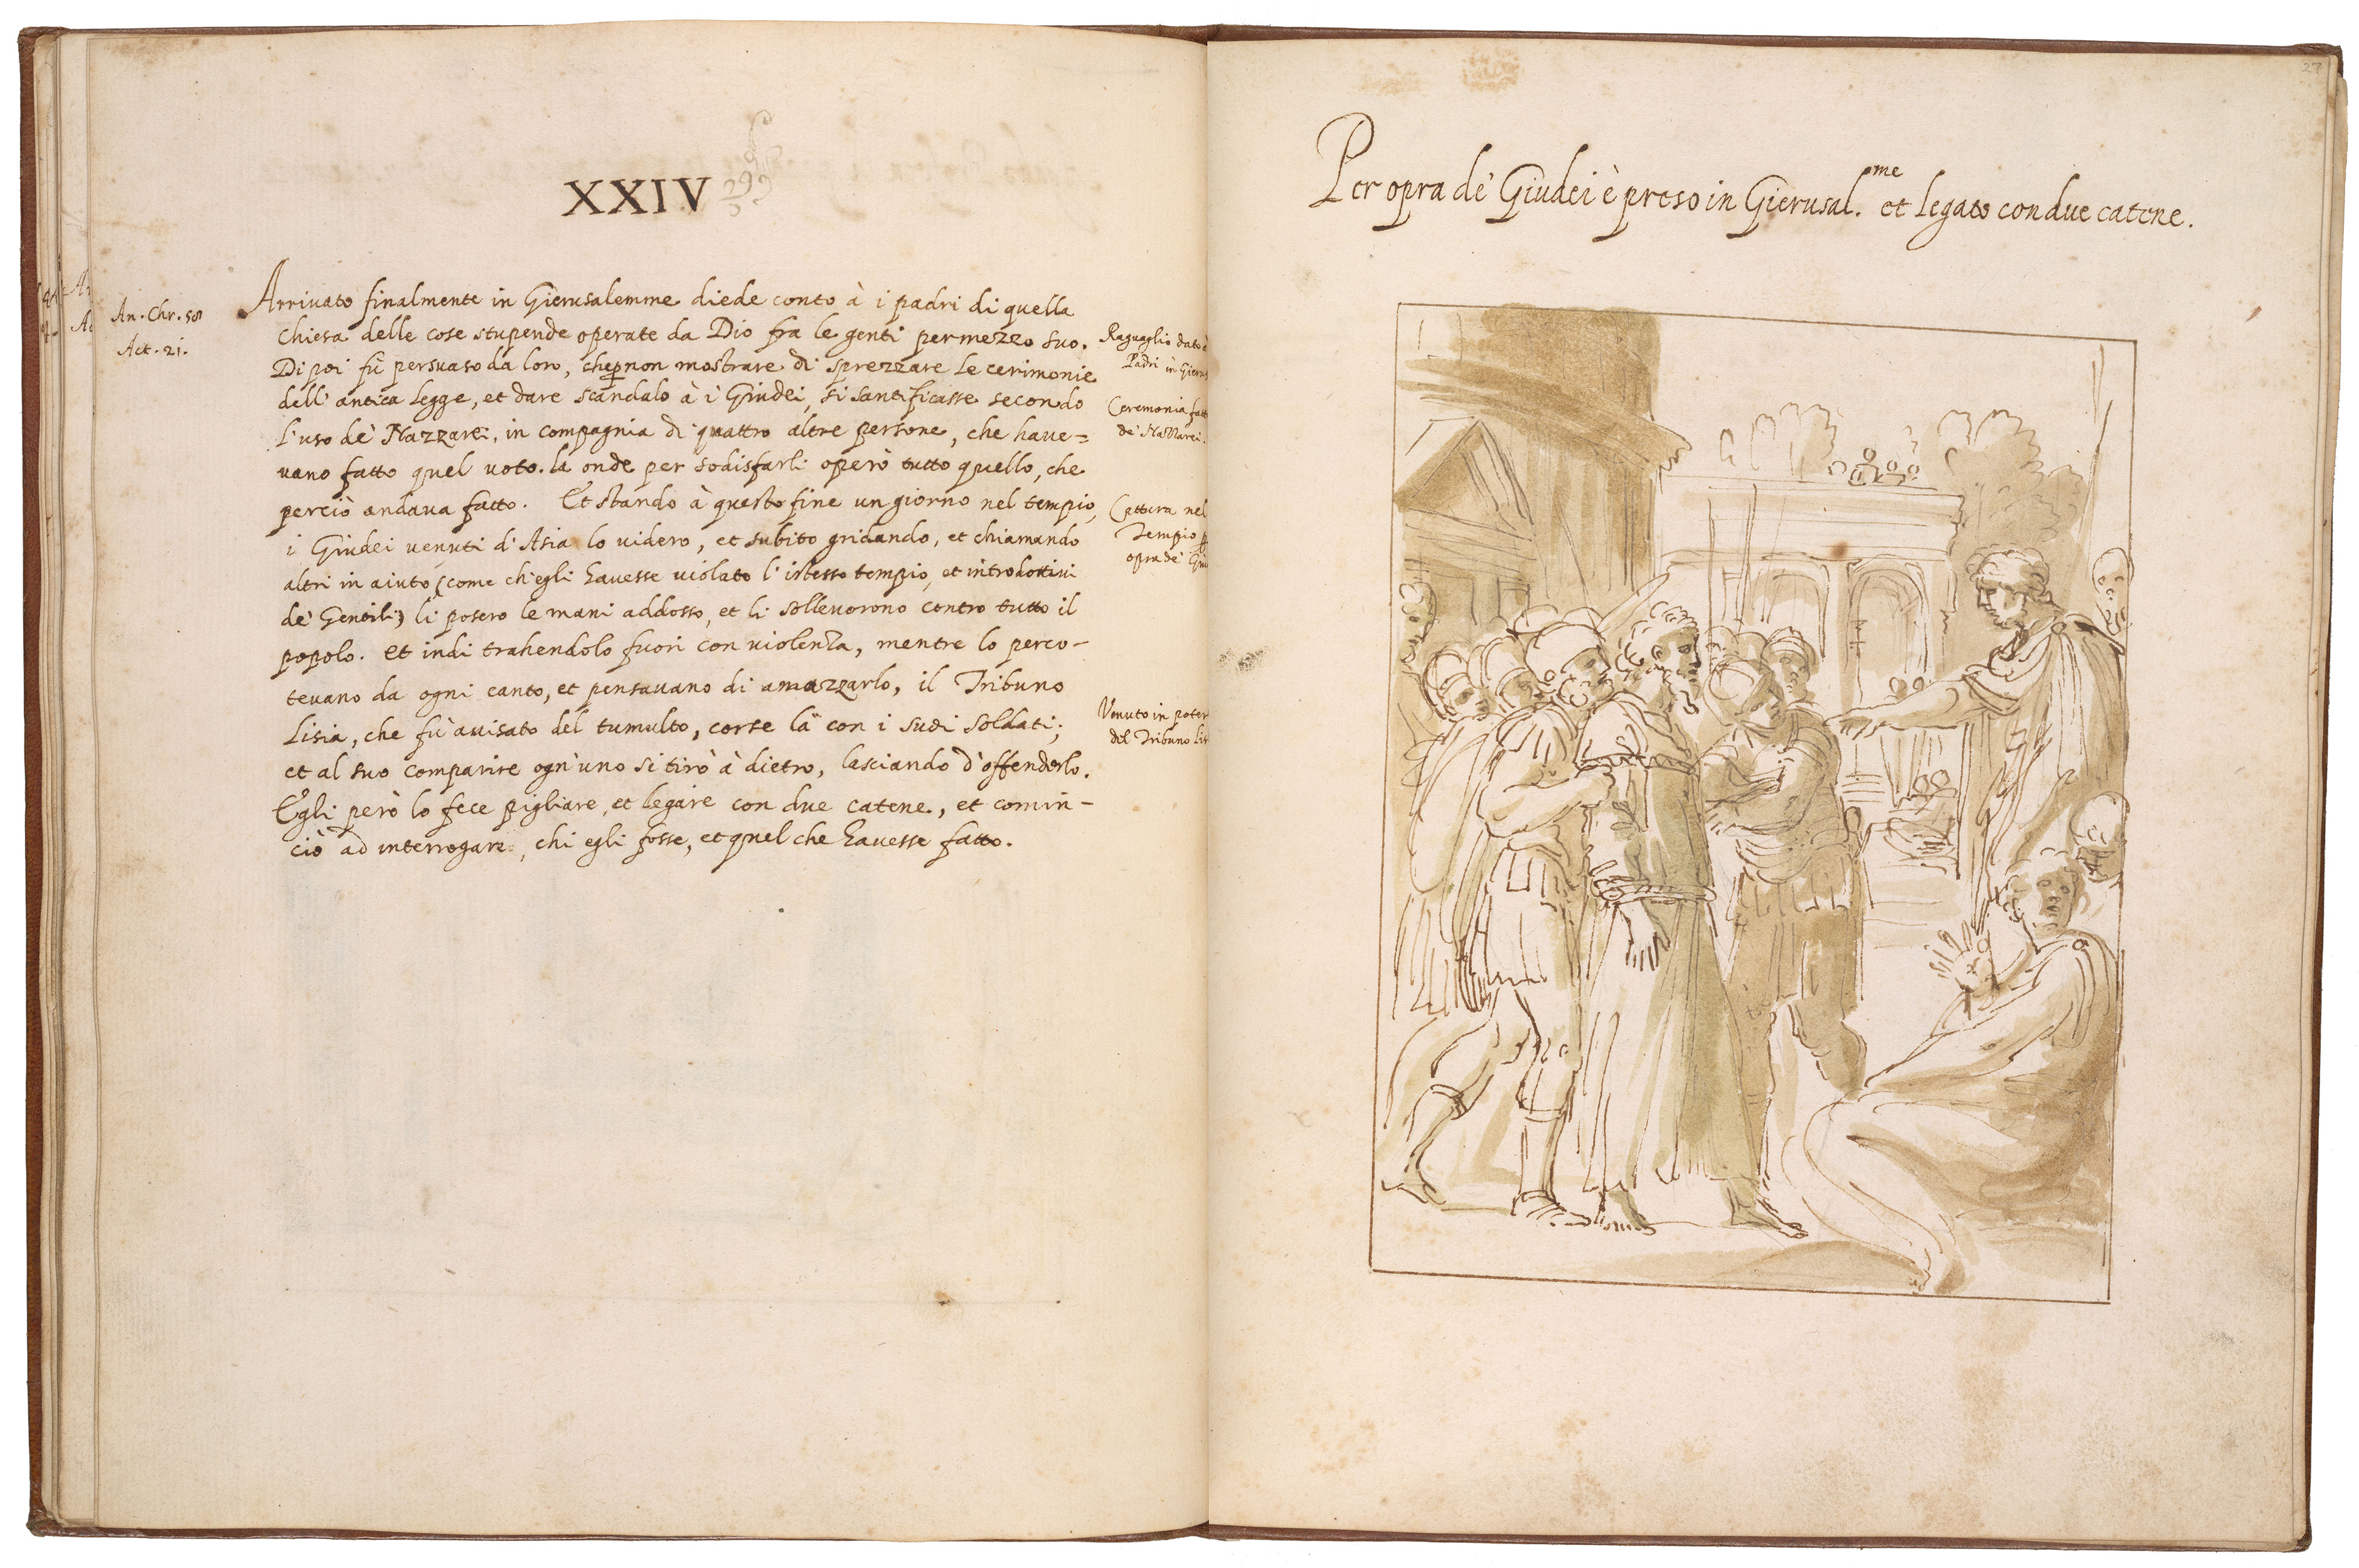 XXIV
An. Chr. 58
Act. 21.
Arrivato finalmente in Gierusalemme diede conto à i padri di quella
Chiesa delle cose stupende operate da Dio fra le genti per mezzo suo.
Di poi fù persuaso da loro, che per non mostrare di sprezzare le cerimonie
dell' antica legge, et dare scandalo à i Giudei, si santificasse secondo
l'uso de' Nazzarei, in compagnia di quattro altre persone, che have=
vano fatto quel voto. la onde per sodisfarli operò tutto quello, che
perciò andava fatto. Et stando à questo fine un giorno nel tempio,
i Giudei venuti d'Asia lo videro, et subito gridando, et chiamando
altri in aiuto, (come ch'egli havesse violato l'istesso tempio, et introdottivi
de' Gentili) li posero le mani addosso, et li sollevorono contro tutto il
popolo. et indi trahendolo fuori con violenza, mentre lo perco-
tevano da ogni canto, et pensavano di amazzarlo, il Tribuno
Lisia, che fù avisato del tumulto, corse là con i suoi soldati;
et al suo comparire ogn'uno si tirò à dietro, lasciando d'offenderlo.
Egli però lo fece pigliare, et legare con due catene, et comin-
ciò ad interrogare, chi egli fosse, et quel che havesse fatto.
Raguaglio dato
Padri in
Ceremonia
de' Nazzarei.
Cattura nel
Tempio
opra de'
Venuto in
del Tribuno
27
Per opra de' Giudei è preso in Gierusal.me et legato con due catene.